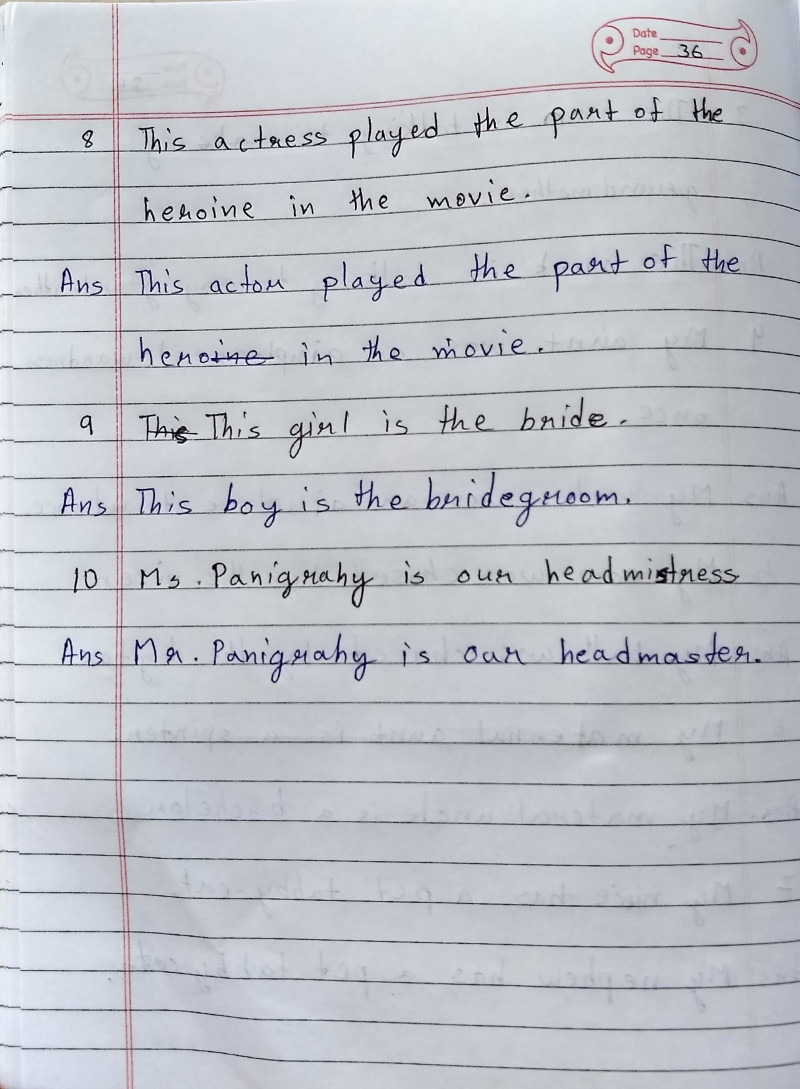 Date
Page 36
8 This actress played the part of the
heroine in the movie.
Ans This actor played the part of the
hero~~ine~~ in the movie.
9 ~~This~~ This girl is the bride.
Ans This boy is the bridegroom.
10 Ms. Panigrahy is our headmistress
Ans Mr. Panigrahy is our headmaster.